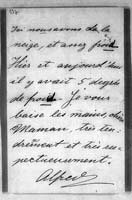 Ici nous avons de la
neige, et assez froid
Hier et aujourd'hui
il y avait 5 degrés
de froid. Je vous
baise les mains, chère
Maman, très ten-
drement et très res-
pectueusement.